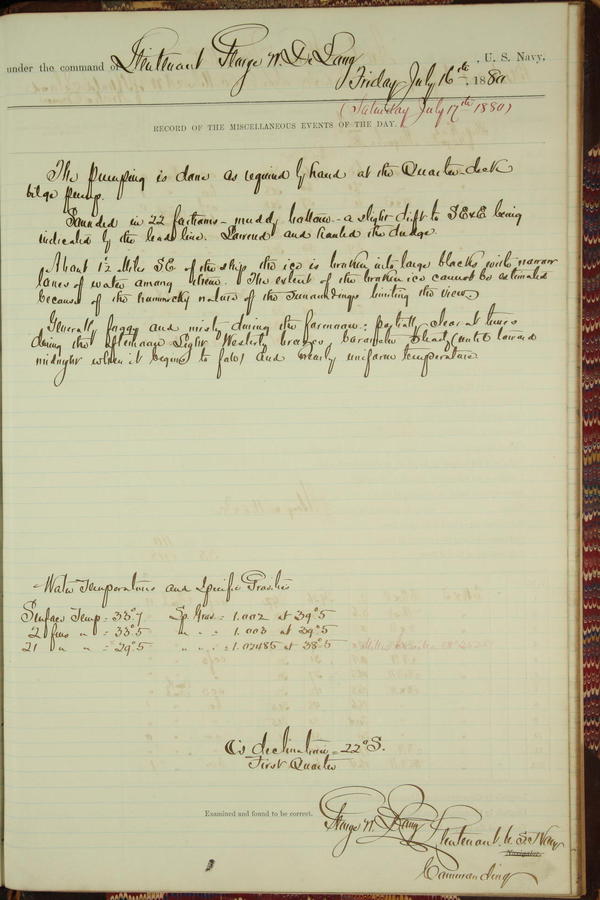 under the command of Lieutenant George W. De Long, U. S. Navy,
Friday July 16th, 1880
(Saturday July 17th 1880)
RECORD OF THE MISCELLANEOUS EVENTS OF THE DAY.
The pumping is done as required by hand at the Quarter-deck
bilge pump.
Sounded in 22 fathoms - muddy bottom - a slight drift to SExE being
indicated by the lead line. Lowered and hauled the dredge.
About 1½ Miles SE of the ship the ice is broken into large blocks with narrow
lanes of water among them. The extent of the broken ice cannot be estimated
because of the hummocky nature of the surroundings limiting the view.
Generally foggy and misty during the forenoon: partially clear at times
during the afternoon. Light Westerly breezes, barometer steady (until toward
midnight when it begins to fall) and nearly uniform temperature.
Water Temperatures and Specific Gravities
Surface Temp = 33°.7 Sp. Grav. = 1.002 at 39°.5
2 fms " = 33°.5 " " = 1.003 at 39°.5
21 " " = 29°.5 " " = 1.02485 at 38°.5
☾'s declination = 22° S.
First Quarter
Examined and found to be correct.
George W. De Long Lieutenant U. S. Navy
Navigator.
Commanding